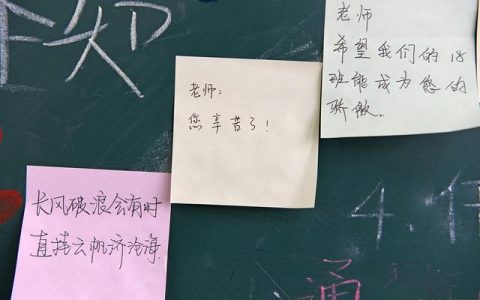 老师:
您辛苦了!
老师
希望我们的18
班能成为您的
骄傲。
长风破浪会有时
直挂云帆济沧海
4.